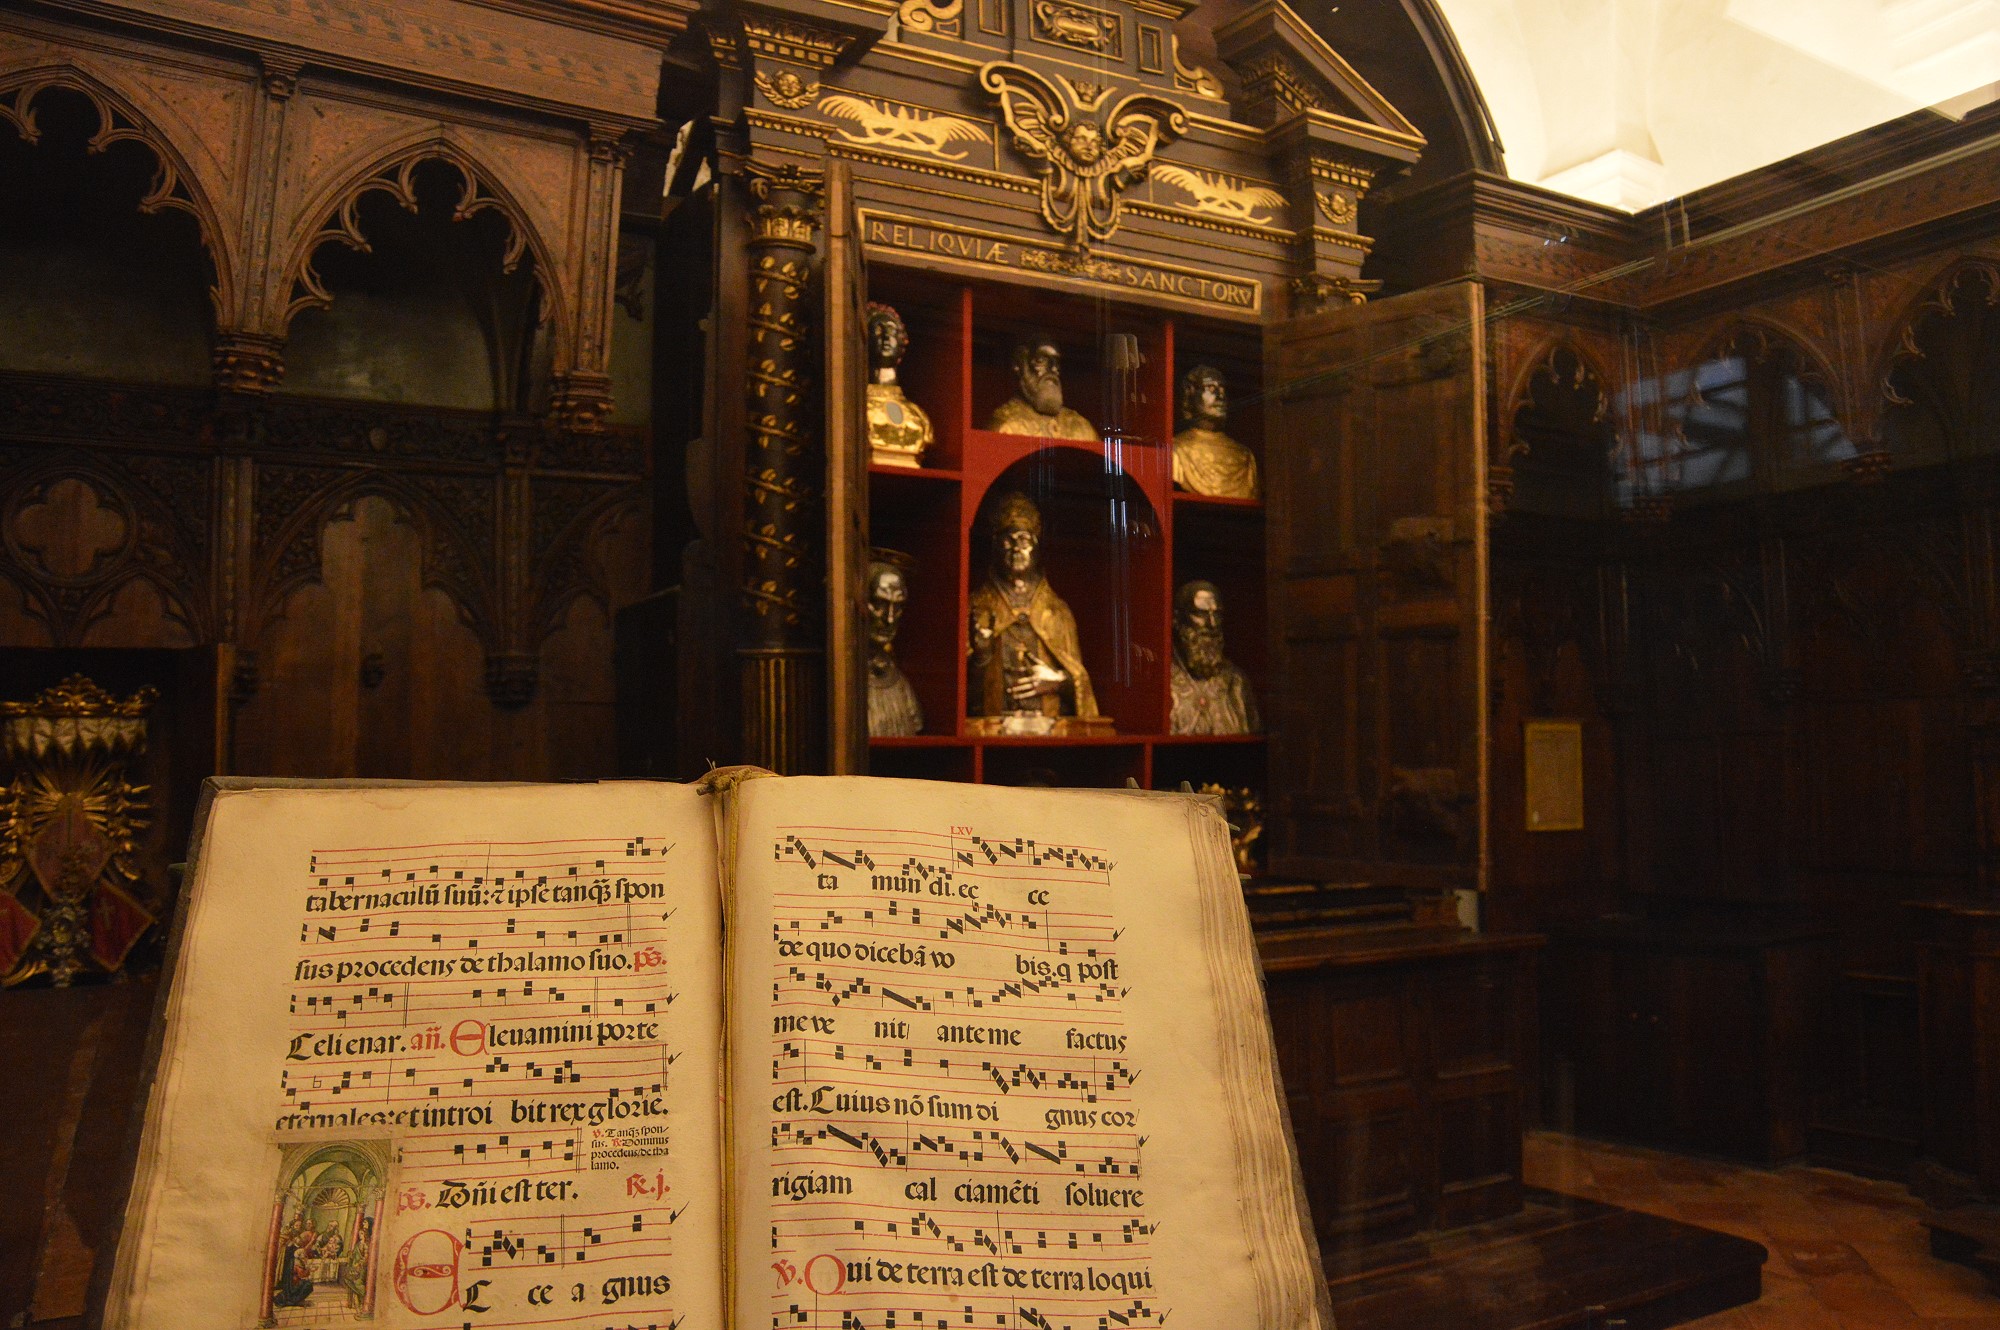 RELIQVIÆ SANCTORV
tabernaculū suū: ⁊ ipse tanq̄ȝ spon
sus procedens de thalamo suo. ps̄.
Celi enar. añ. Eleuamini porte
eternales: et introi bit rex glorie.
v. Tanq̄ȝ spon/
sus. ℟. Dominus
procedens/de tha
lamo.
ps̄. Dñi est ter. ℟. j.
Ec ce a gnus
LXV
ta mun di. ec ce
de quo dicebā vo bis. q post
me ve nit/ ante me factus
est. Cuius nō sum di gnus cor/
rigiam cal ciamēti soluere
℣. Qui de terra est de terra loqui